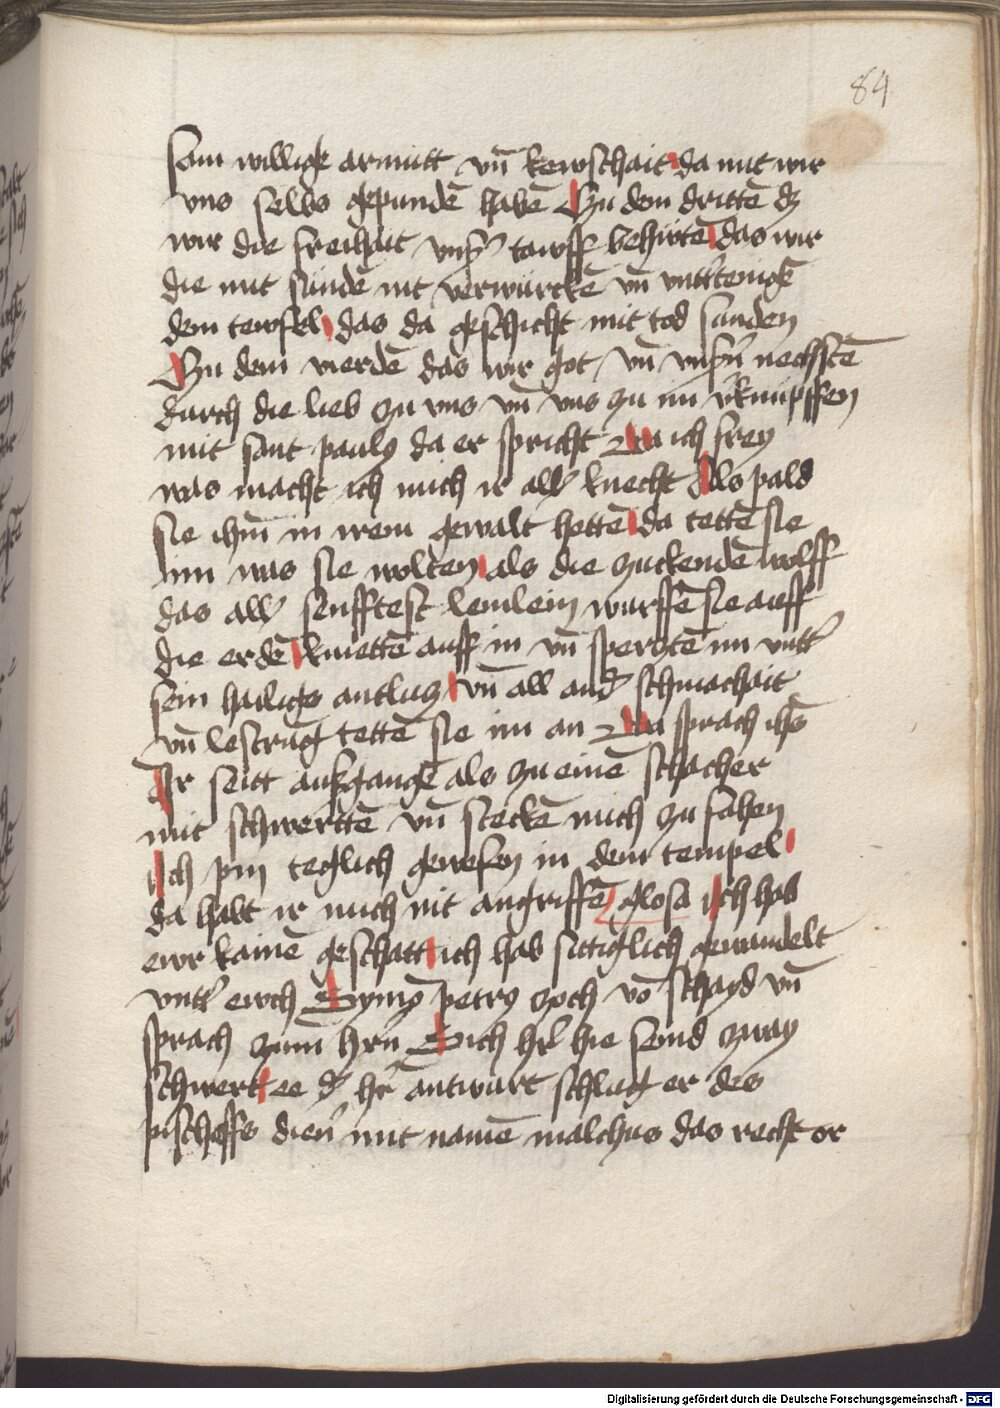 84
sam willige armutt vn̄ kewschait da mit wir
uns selbs gepundē habē Zu dem drittē dz
wir die freihait vnsr̄ tawff behütē das wir
die mit sündē nit verwürckē vn̄ vntterteingē
dem tewfel das da geschicht mit tod sunden
Zu dem vierdē das wir got vn̄ vnsrn̄ nechstē
durch die lieb zu vns vn̄ vns zu im v̓knüpffen
mit sant pauls da er spricht Da ich frey
was macht ich mich ir all̓ knecht Als pald
sie ihm̄ in irem gewalt hettē da tettē sie
im was sie wolten als die zuckendē wolff
das all̓ senfftest lemlein wurffē sie auff
die erdē knietē auff in vn̄ spergtē im vntt̓
sein hailigs antlutz vn̄ all and̓ schmachait
vn̄ lestrūg tettē sie im an Da sprach ihs̄
Ir seitt auszgangē als zu einē schacher
mit schwerttē vn̄ steckē mich zu fahen
Ich pin teglich gewesen in dem tempel
da habt ir mich nit angriffē glosa Ich hab
ewr kainē geschatt ich hab sittiglich gewandelt
vntt̓ ewch Symō petrus zoch vō schayd vn̄
sprach zum hrn̄ Sich hr̄ hie send zway
schwert ee d̓ hr̄ antwurt schlug er des
pischoffs dien̓ mit namē malchus das recht or
Digitalisierung gefördert durch die Deutsche Forschungsgemeinschaft - DFG